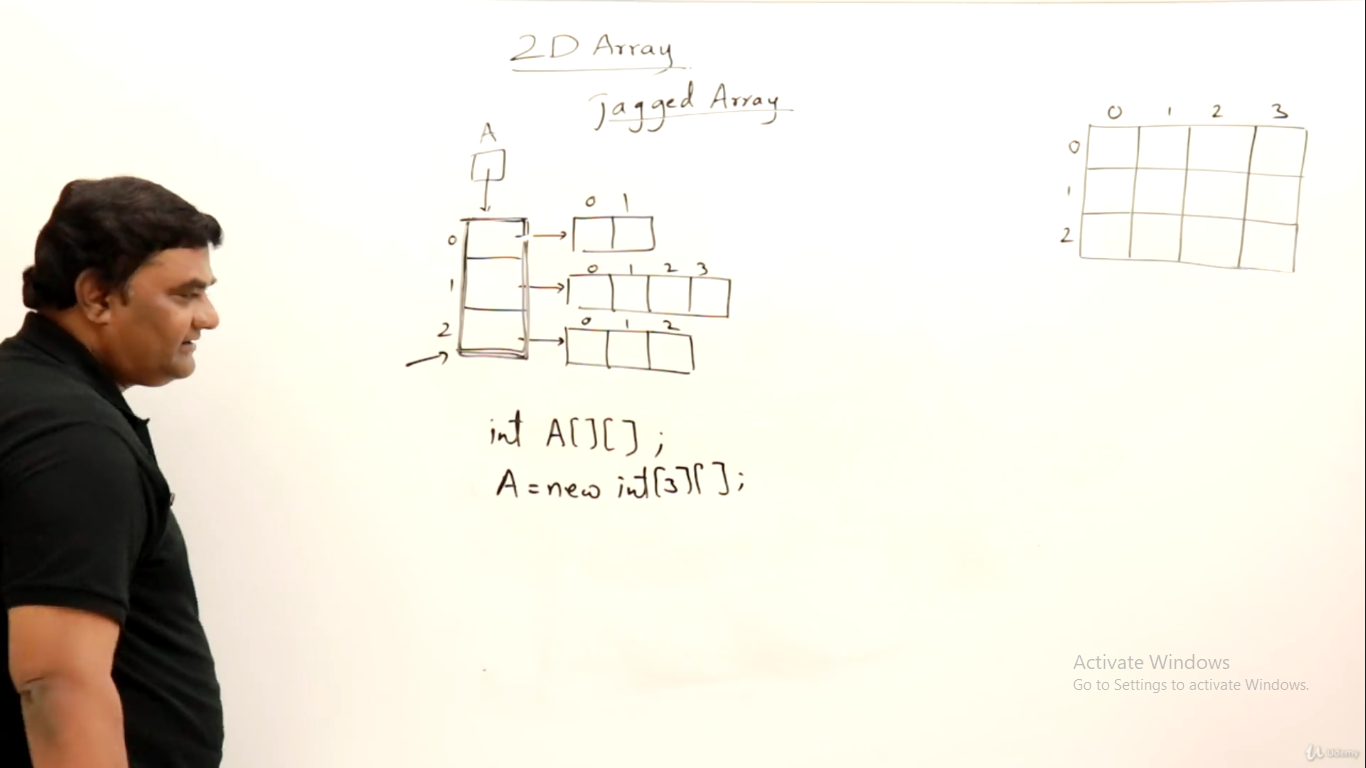 2D Array
Jagged Array
A
0 1 2 3
0
1
2
0 1
0
0 1 2 3
1
0 1 2
2
int A[][];
A=new int[3][];
Activate Windows
Go to Settings to activate Windows.
Udemy